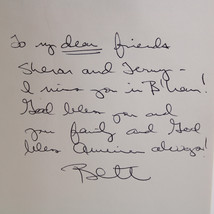 To my dear friends
Sheran and Jerry -
I miss you in B'Ham!
God bless you and
you family and God
bless America always!
Bett